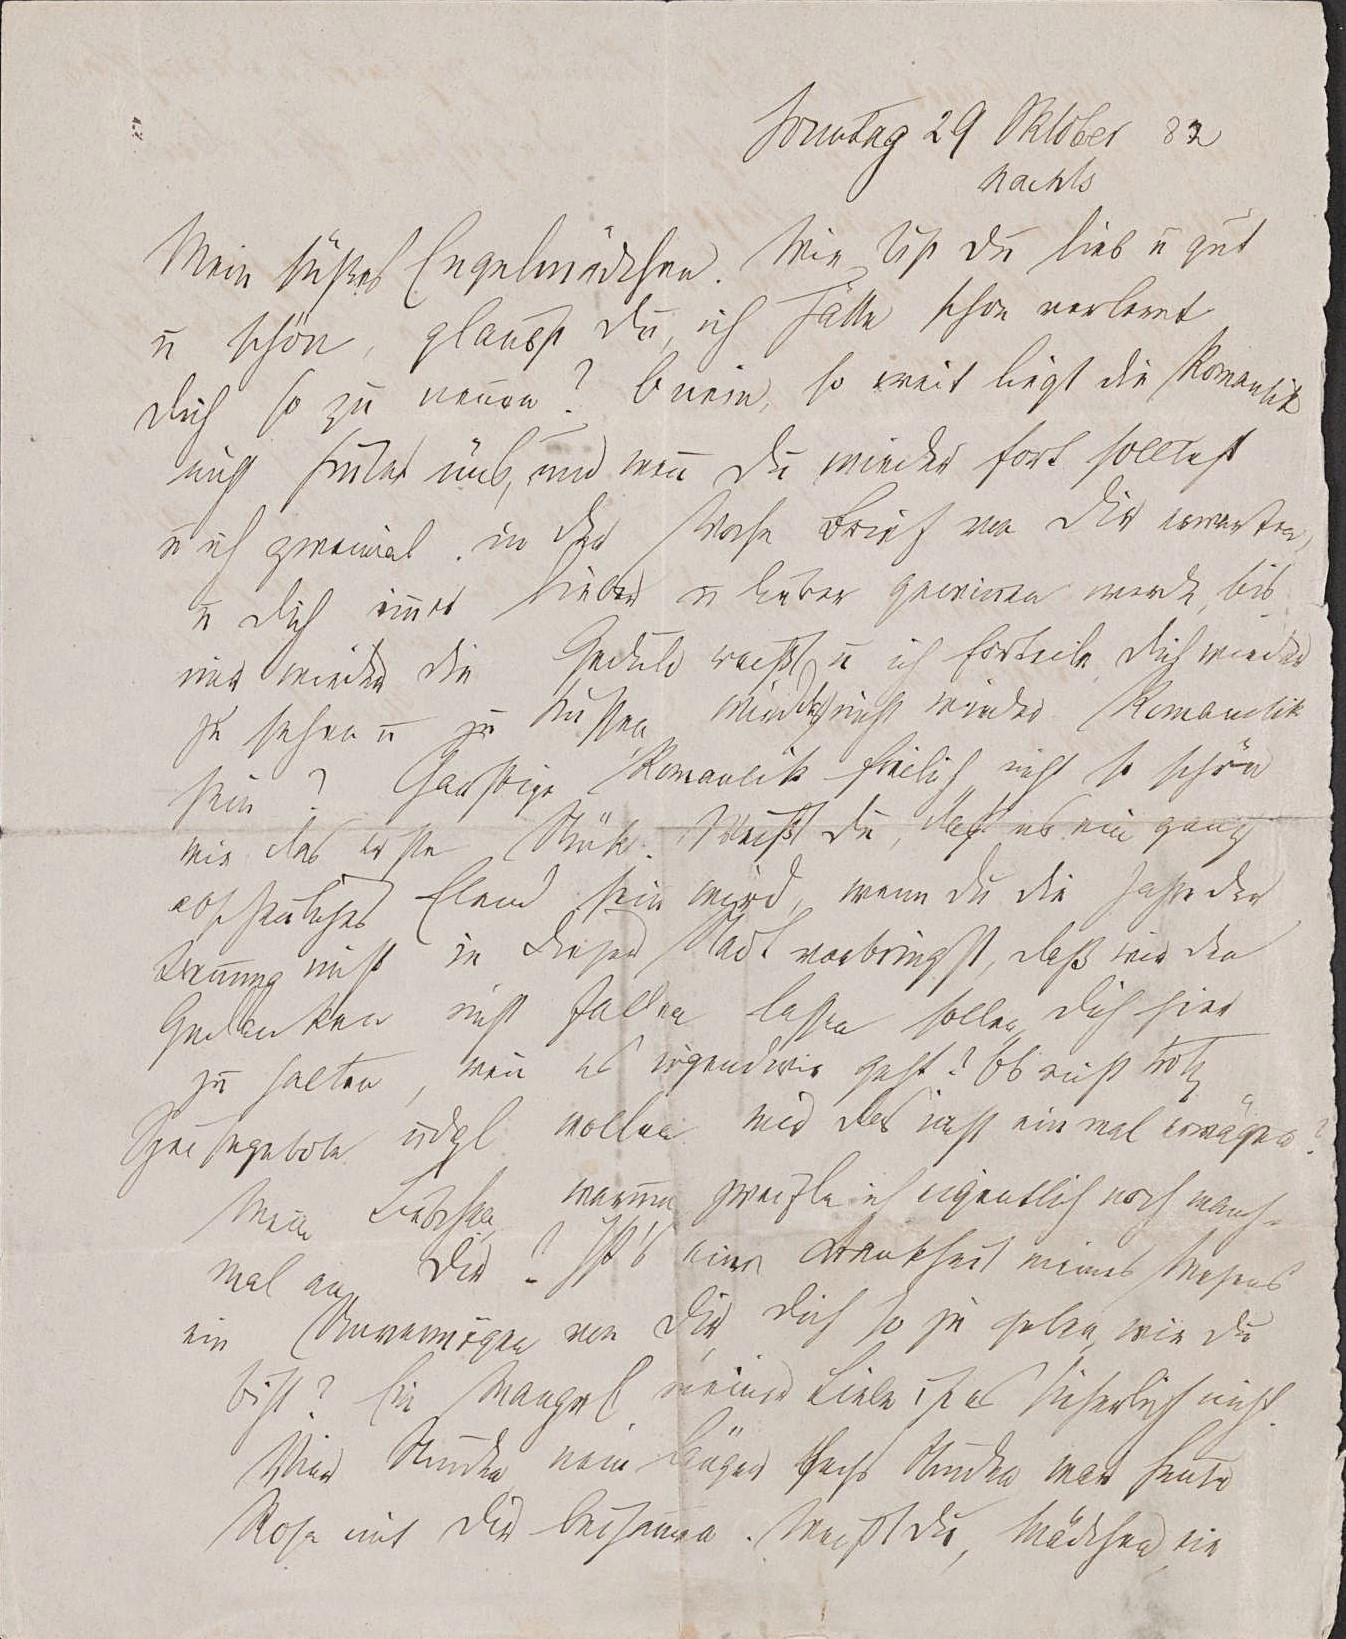 Sonntag 29 Oktober 82
Nachts
Mein süßes Engelmädchen. Wie bist Du lieb u gut
u schön, glaubst Du, ich hätte schon verlernt
Dich so zu nennen? O nein, so weit liegt die Romantik
nicht hinter uns, und wenn Du wieder fort solltest
u ich zweimal in der Woche Brief von Dir erwarten,
u Dich immer lieber u lieber gewinnen werde, bis
mir wieder die Geduld reißt u ich forteile Dich wieder
zu sehen u zu küssen, wird das nicht wieder Romantik
sein? Garstige Romantik freilich, nicht so schön
wie das erste Stück. Weißt Du, daß es ein ganz
abscheuliches Elend sein wird, wenn Du die Jahre der
Trennung nicht in dieser Stadt verbringst, daß wir den
Gedanken nicht fallen lassen sollen, Dich hier
zu halten, wenn es irgendwie geht? Ob nicht trotz
udgl wollen wir das nicht einmal erwägen?
Mein Liebchen, warum zweifle ich eigentlich noch manch-
mal an Dir? Ist's eine Krankheit meines Wesens
ein Unvermögen von Dir, Dich so zu geben, wie Du
bist? Ein Mangel meiner Liebe ist es sicherlich nicht.
Vier Stunden, nein länger sechs Stunden war heute
Rosa mit Dir beisammen. Weißt Du, Mädchen, ein